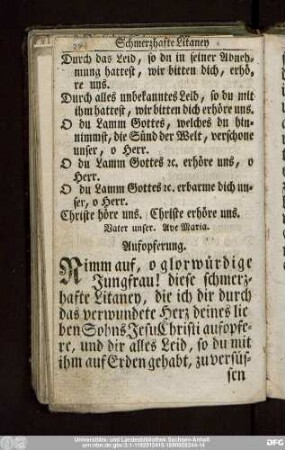 Schmerzhafte Litaney
Durch das Leid, so du in seiner Abneh-
mung hattest, wir bitten dich, erhö-
re uns.
Durch alles unbekanntes Leid, so du mit
ihm hattest, wir bitten dich erhöre uns.
O du Lamm Gottes, welches du hin-
nimmst, die Sünd der Welt, verschone
unser, o Herr.
O du Lamm Gottes ꝛc. erhöre uns, o
Herr.
O du Lamm Gottes ꝛc. erbarme dich un-
ser, o Herr.
Christe höre uns. Christe erhöre uns.
Vater unser. Ave Maria.
Aufopferung.
Nimm auf, o glorwürdige
Jungfrau! diese schmerz-
hafte Litaney, die ich dir durch
das verwundete Herz deines lie
ben Sohns Jesu Christi aufopfe-
re, und dir alles Leid, so du mit
ihm auf Erden gehabt, zu versüs-
sen
Universitäts- und Landesbibliothek Sachsen-Anhalt